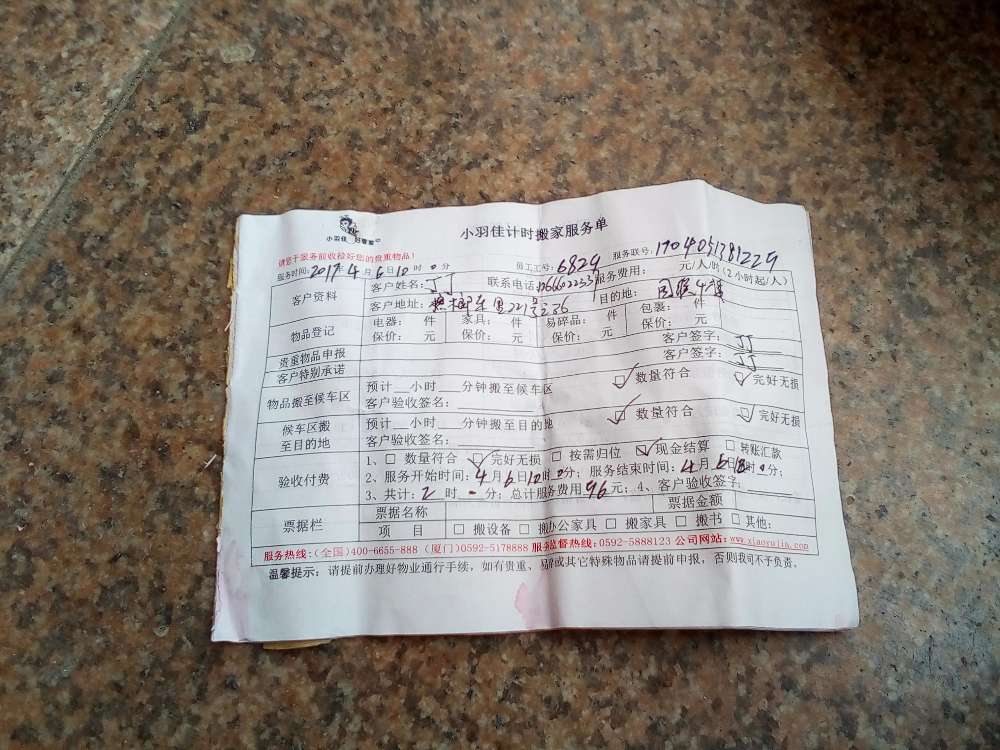 小羽佳 好管家
小羽佳计时搬家服务单
请您于服务前收检好您的贵重物品!
服务时间: 2017 4月6日10时0分 员工工号: 6829 服务联号: 1704051381229
客户资料 客户姓名: 丁丁 联系电话: 服务费用: 元/人/时(2小时起/人)
客户地址: 目的地:
物品登记 电器: 件 家具: 件 易碎品: 件 包裹: 件
保价: 元 保价: 元 保价: 元 保价: 元
贵重物品申报 客户签字: 丁丁
客户特别承诺 客户签字: 丁丁
物品搬至候车区 预计__小时___分钟搬至候车区 ☑ 数量符合 ☑ 完好无损
客户验收签名:
候车区搬至目的地 预计__小时___分钟搬至目的地 ☑ 数量符合 ☑ 完好无损
客户验收签名:
验收付费 1、□ 数量符合 ☑ 完好无损 □ 按需归位 ☑ 现金结算 □ 转账汇款
2、服务开始时间: 4月6日10时0分; 服务结束时间: 4月6日 时0分;
3、共计: 2时0分; 总计服务费用96元; 4、客户验收签字:
票据栏 票据名称 票据金额
项 目 □ 搬设备 □ 搬办公家具 □ 搬家具 □ 搬书 □ 其他:
服务热线:(全国)400-6655-888 (厦门)0592-5178888 服务监督热线:0592-5888123 公司网站: www.xiaoyujia.com
温馨提示: 请提前办理好物业通行手续, 如有贵重、易碎或其它特殊物品请提前申报, 否则我司不予负责。